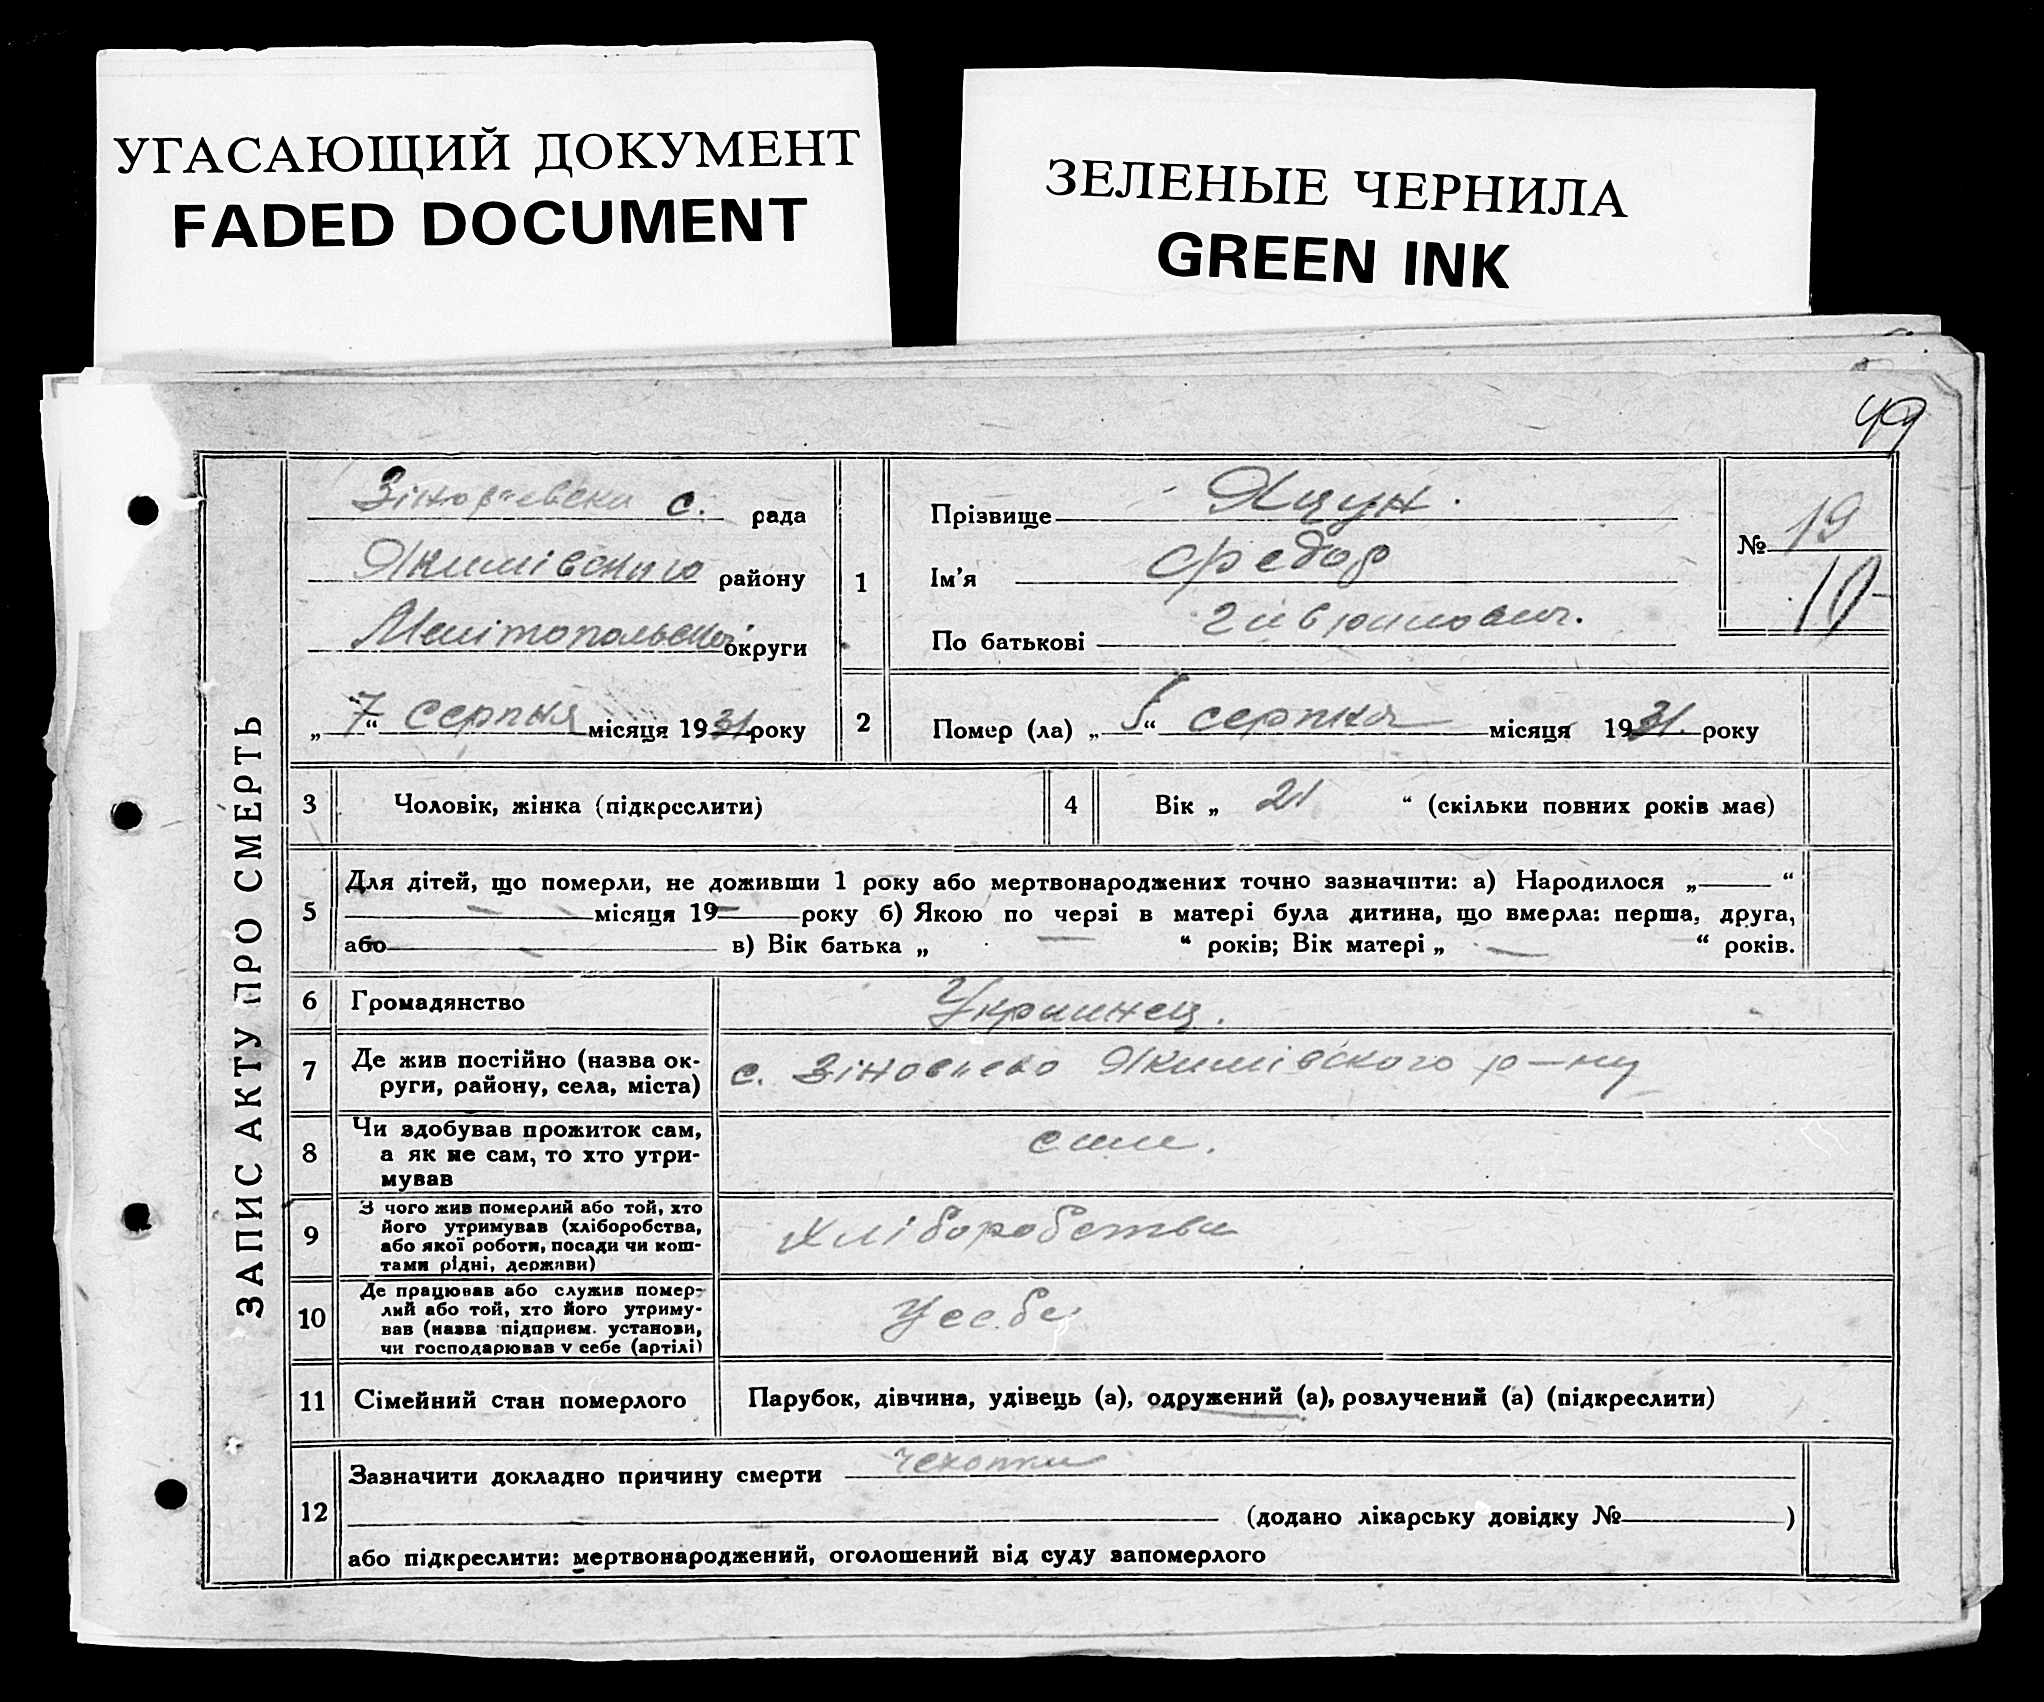 УГАСАЮЩИЙ ДОКУМЕНТ
FADED DOCUMENT
ЗЕЛЕНЫЕ ЧЕРНИЛА
GREEN INK
49
ЗАПИС АКТУ ПРО СМЕРТЬ
с. рада
Якимівського району
Мелітопольської округи
„7“ серпня місяця 1931 року
1
Прізвище Яцун.
Ім'я Федор
По батькові
№ 19
10
2 Помер (ла) „5“ серпня місяця 1931. року
3 Чоловік, жінка (підкреслити)
4 Вік „ 21 “ (скільки повних років має)
5 Для дітей, що померли, не доживши 1 року або мертвонароджених точно зазначити: а) Народилося „— “
— місяця 19— року б) Якою по черзі в матері була дитина, що вмерла: перша, друга,
або — в) Вік батька „ — “ років; Вік матері „ — “ років.
6 Громадянство Украинец.
7 Де жив постійно (назва ок-
руги, району, села, міста)
с. Якимівського р-ну
8 Чи здобував прожиток сам,
а як не сам, то хто утри-
мував
сам.
9 З чого жив померлий або той, хто
його утримував (хліборобства,
або якої роботи, посади чи кош-
тами рідні, держави)
Хліборобства
10 Де працював або служив помер-
лий або той, хто його утриму-
вав (назва підприєм. установи,
чи господарював у себе (артілі)
У себе
11 Сімейний стан померлого Парубок, дівчина, удівець (а), одружений (а), розлучений (а) (підкреслити)
12 Зазначити докладно причину смерти чехотка
(додано лікарську довідку № )
або підкреслити: мертвонароджений, оголошений від суду запомерлого